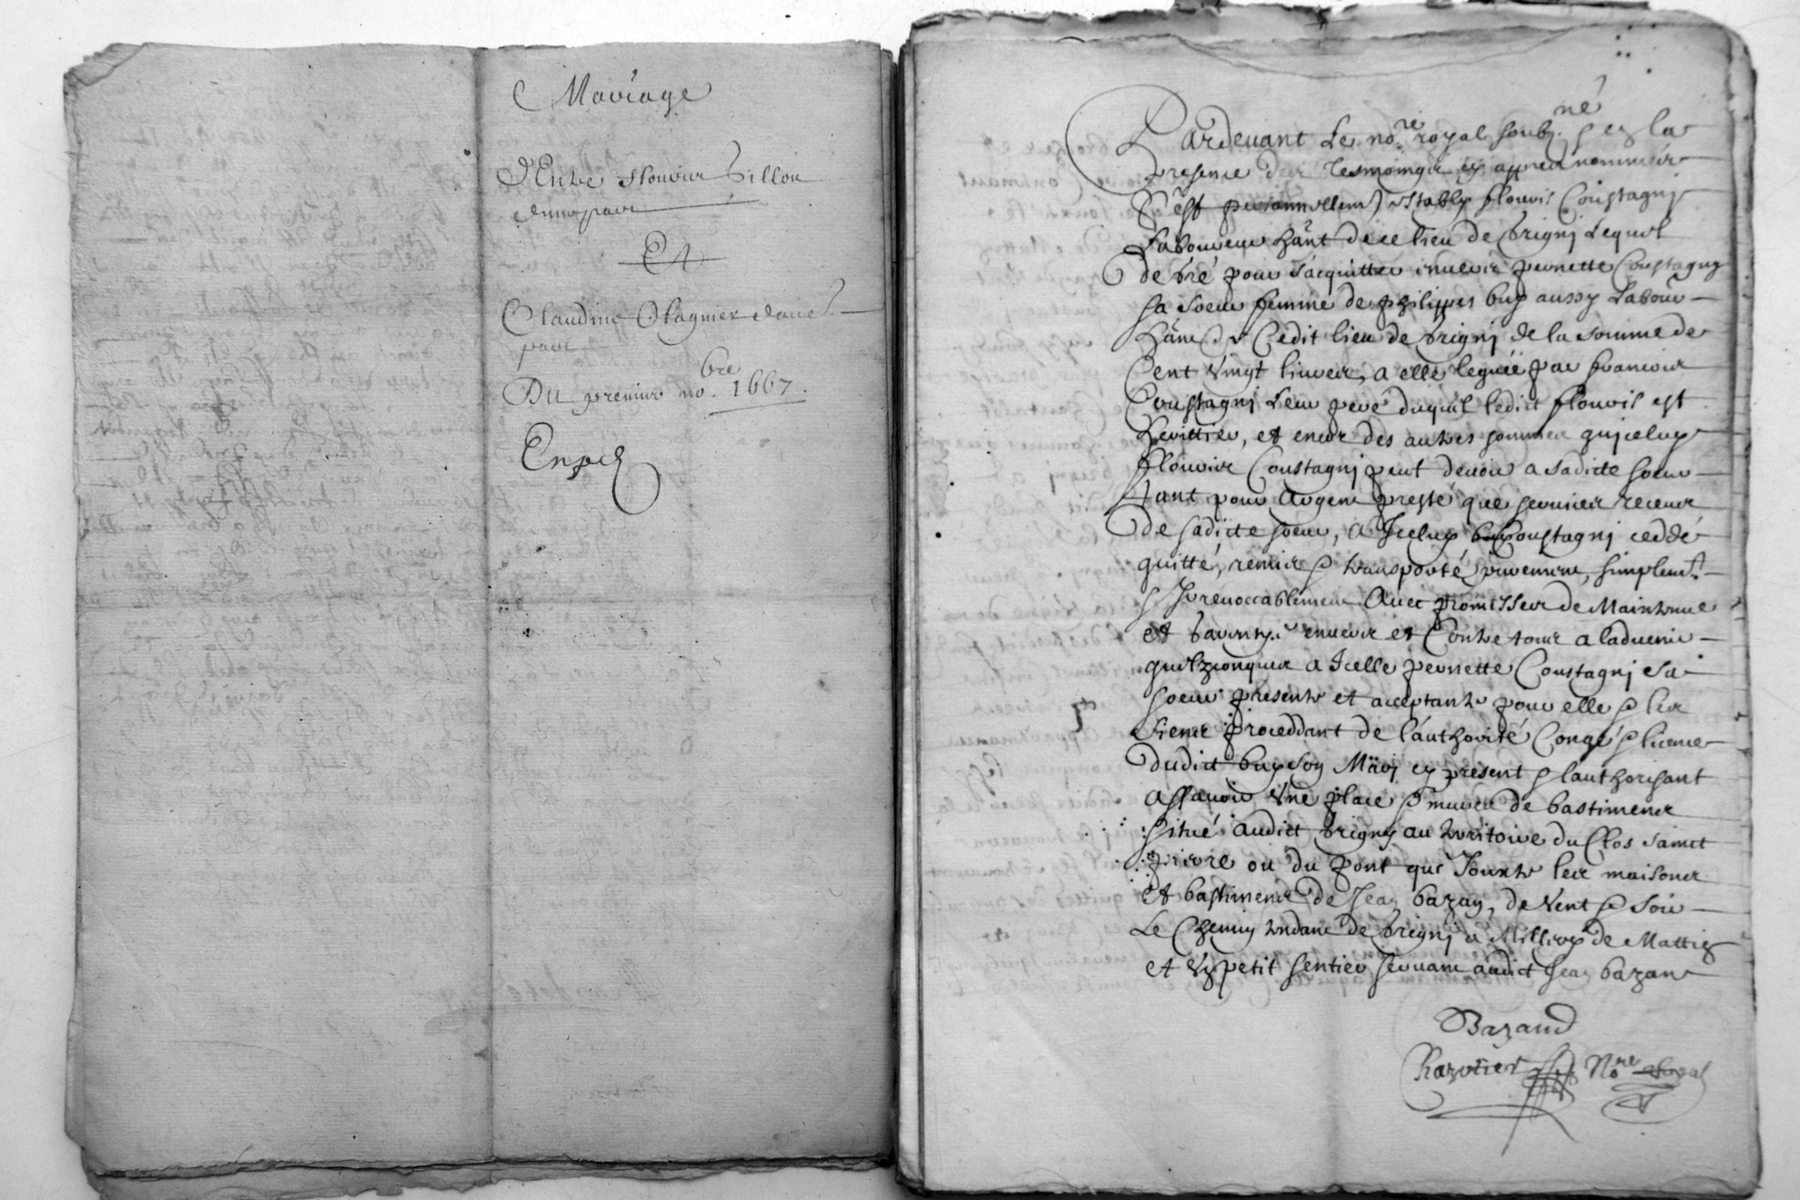 Mariage
D'Entre Flouris Villon
d'une part
Et
Claudine Olagnier d'aue.t
part
Du premier no.bre 1667.
Exped
Pardevant Le no.re royal soub.né & en la
presence des tesmoingtz cy appres nommés
s'est personnellem.t estably flouris Coustagni
Laboureur h̃ant de ce lieu de brigni Lequel
de gré pour s'acquitter enuers pernette Coustagny
sa soeur femme de philippes buy aussy Labour
h̃ant de Cedit lieu de brigni de la somme de
Cent Vingt liures, a elle leguée par francois
Coustagni Leur pere duquel ledict flouris est
herittier, et encor des autres sommes qu'iceluy
flouris Coustagni peut deuoir a sadicte soeur
tant pour Argent presté que seruices receus
de sadicte soeur, A Iceluy Coustagni ceddé
quitté, remis & transporté purement, simplem.t
& Irreuoccablement Auec promesses de Maintenue
et garentye enuers et Contre tous a laduenir
quelzconques a Icelle pernette Coustagni sa
soeur presente et acceptante pour elle & les
siens proceddant de l'authorité Congé & licence
dudict buy son Mary cy present & l'authorisant
Assauoir Vne place & mures de bastiment
situé audict brigny au territoire du Clos sainct
pierre ou du pont que Jouxte les maisons
et bastiments de Jean bazan, de Vent & soir
Le Chemin tendant de brigni a Millery de Mattin
et Vn petit sentier seruant audict Jean bazan
Bazand
No.re Royal